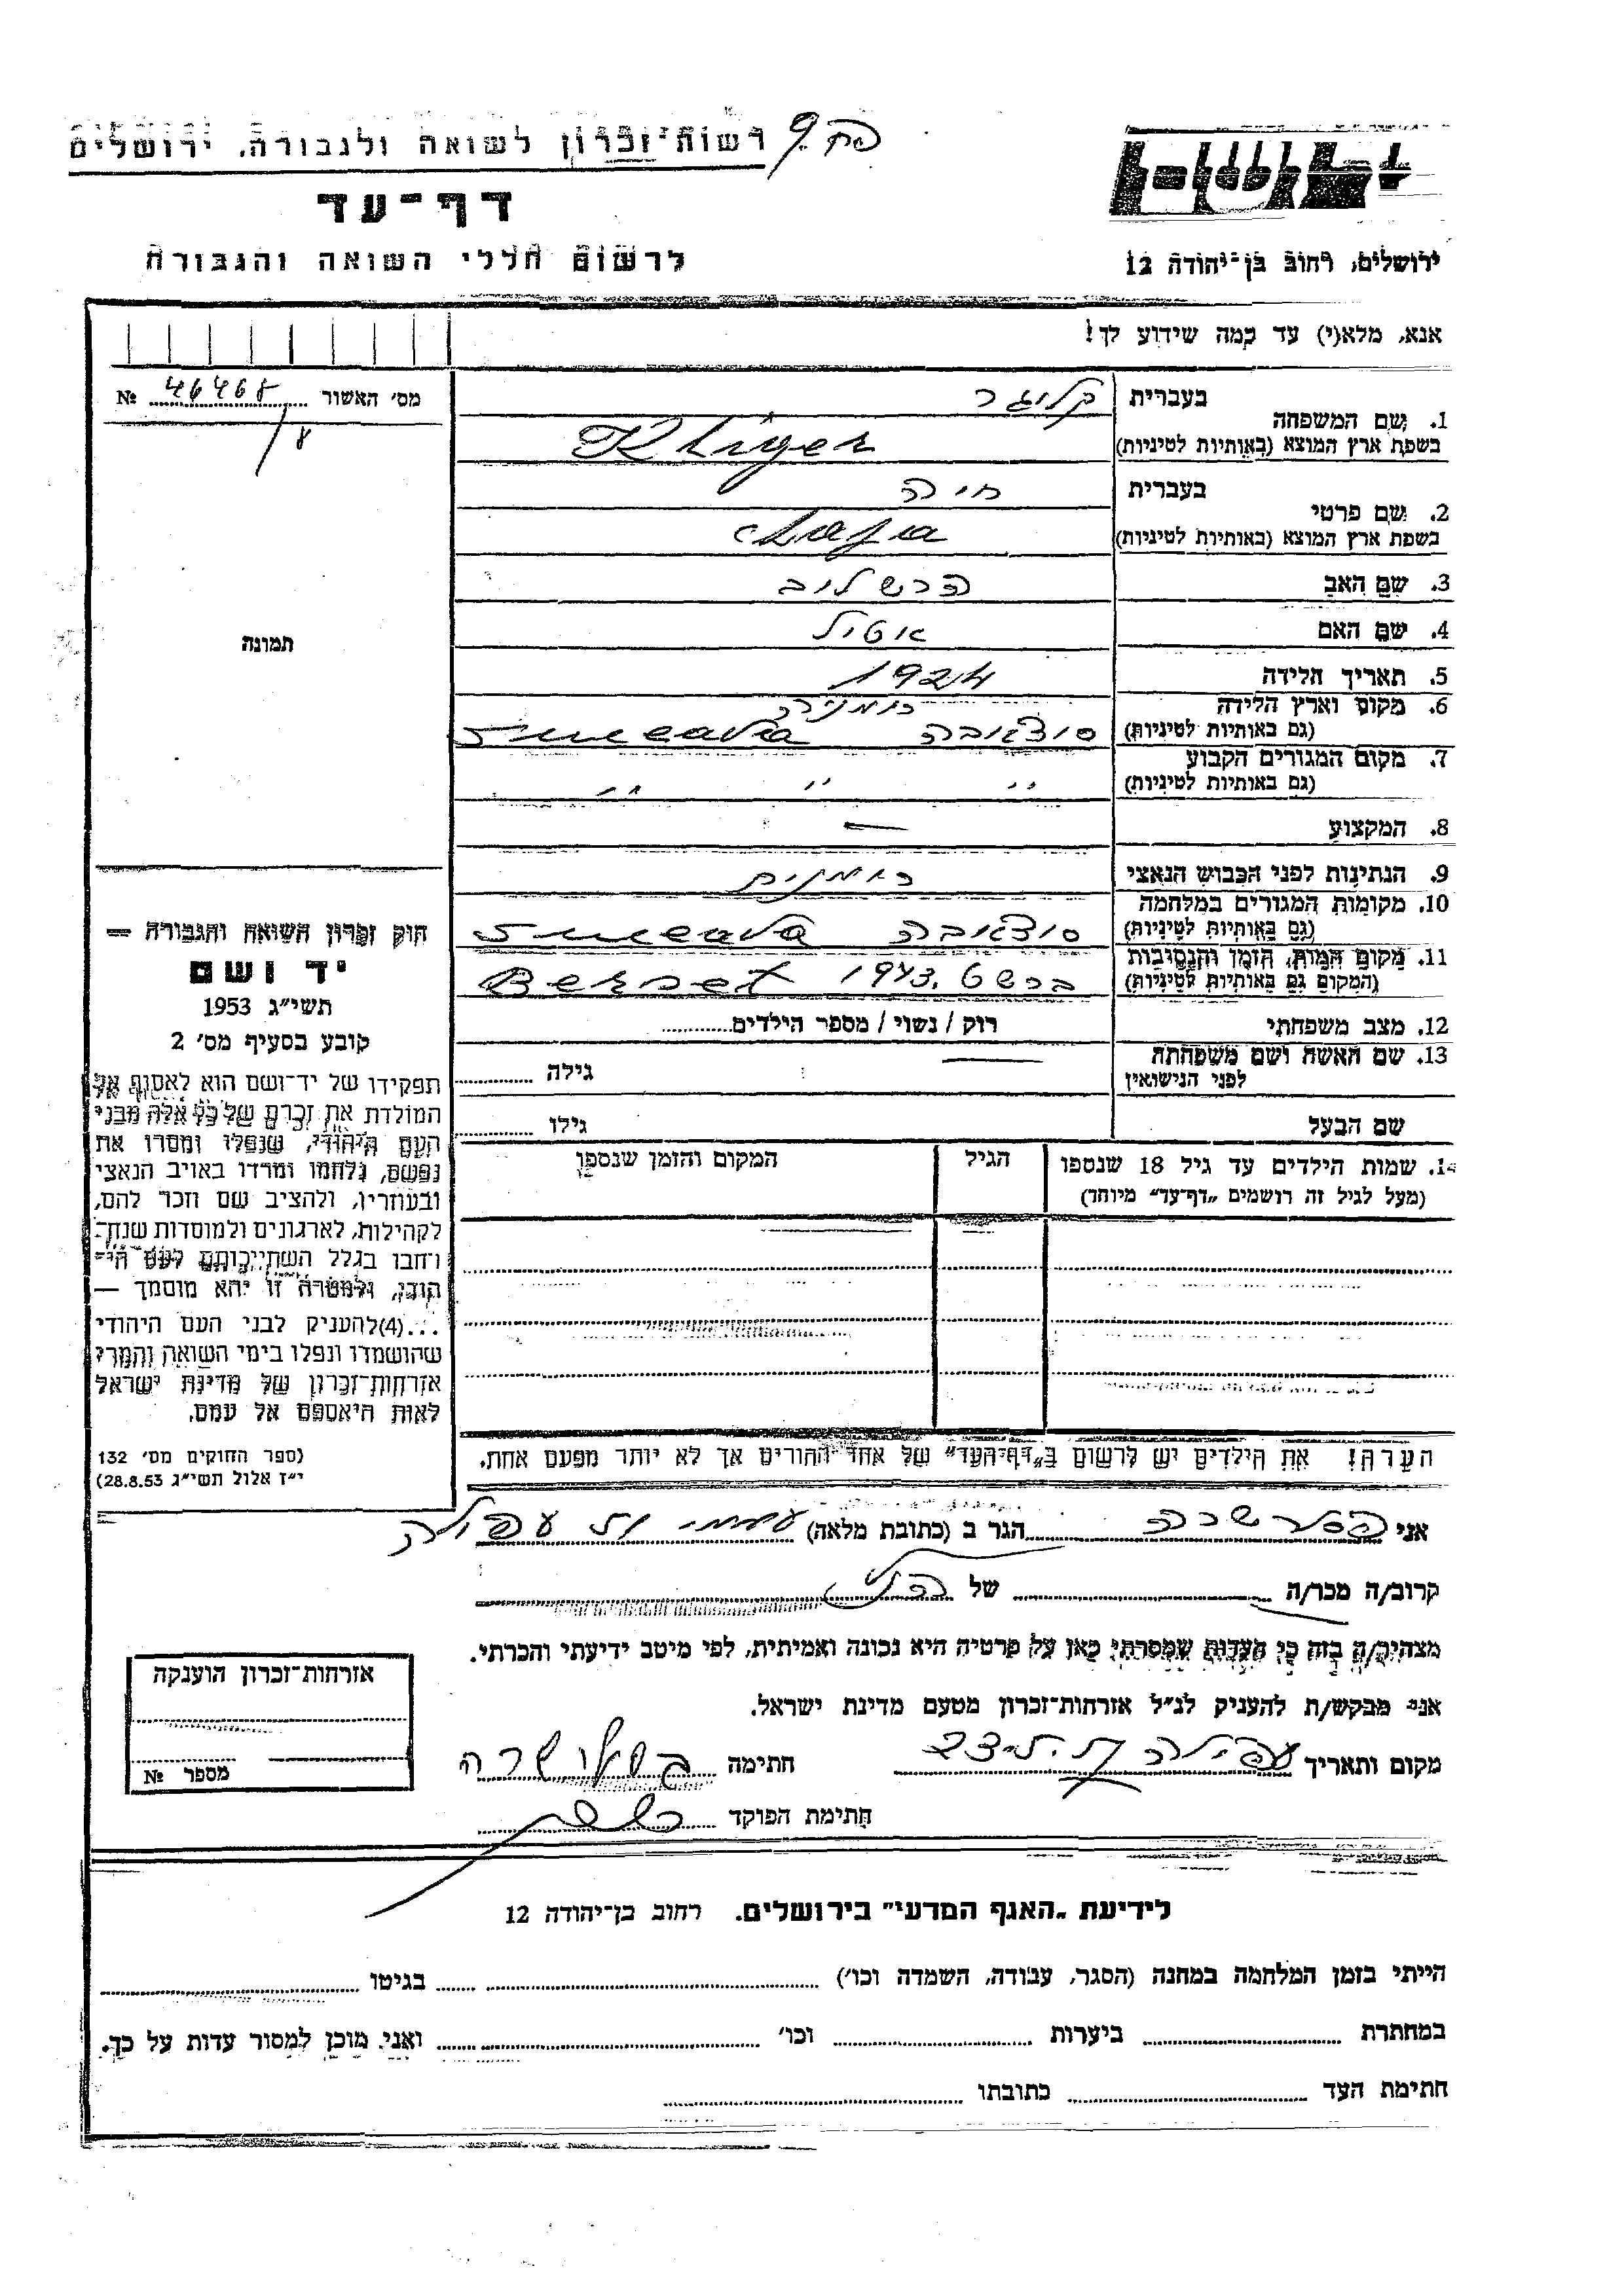 רשות-זכרון לשואה ולגבורה, ירושלים
דף-עד
לרשום חללי השואה והגבורה
ירושלים, רחוב בן-יהודה 12
אנא, מלא(י) עד כמה שידוע לך!
מס' האשור 46468 №
8
תמונה
1. שם המשפחה
בעברית קלוגר
בשפת ארץ המוצא (באותיות לטיניות) Kluger
2. שם פרטי
בעברית חיה
בשפת ארץ המוצא (באותיות לטיניות) Chaja
3. שם האב הרש לוב
4. שם האם אטיל
5. תאריך הלידה 1924
6. מקום וארץ הלידה רומניה
(גם באותיות לטיניות) סוצאבה Suceava
7. מקום המגורים הקבוע
(גם באותיות לטיניות) " " "
8. המקצוע —
9. הנתינות לפני הכבוש הנאצי רומנית
10. מקומות המגורים במלחמה
(גם באותיות לטיניות) סוצאבה Suceava
11. מקום המות, הזמן והנסיבות
(המקום גם באותיות לטיניות) ברשט 1943. Berset
12. מצב משפחתי רוק / נשוי / מספר הילדים
13. שם האשה ושם משפחתה — גילה
לפני הנישואין
שם הבעל גילו
14. שמות הילדים עד גיל 18 שנספו הגיל המקום והזמן שנספו
(מעל לגיל זה רושמים „דף-עד” מיוחד)
הערה! את הילדים יש לרשום ב„דף-העד” של אחד ההורים אך לא יותר מפעם אחת.
חוק זכרון השואה והגבורה —
יד ושם
תשי"ג 1953
קובע בסעיף מס' 2
תפקידו של יד-ושם הוא לאסוף אל
המולדת את זכרם של כל אלה מבני
העם היהודי, שנפלו ומסרו את
נפשם, נלחמו ומרדו באויב הנאצי
ובעוזריו, ולהציב שם וזכר להם,
לקהילות, לארגונים ולמוסדות שנח-
רבו בגלל השתייכותם לעם הי-
הודי, ולמטרה זו יהא מוסמך —
...(4) להעניק לבני העם היהודי
שהושמדו ונפלו בימי השואה והמרי
אזרחות-זכרון של מדינת ישראל
לאות היאספם אל עמם.
(ספר החוקים מס' 132
י"ז אלול תשי"ג 28.8.53)
אני שרה הגר ב (כתובת מלאה) עפולה
קרוב/ה מכר/ה של
מצהיר/ה בזה כי העדות שמסרתי כאן על פרטיה היא נכונה ואמיתית, לפי מיטב ידיעתי והכרתי.
אני מבקש/ת להעניק לנ"ל אזרחות-זכרון מטעם מדינת ישראל.
מקום ותאריך עפולה חתימה שרה
חתימת הפוקד
אזרחות-זכרון הוענקה
מספר №
לידיעת „האגף המדעי” בירושלים. רחוב בן-יהודה 12
הייתי בזמן המלחמה במחנה (הסגר, עבודה, השמדה וכו') בגיטו
במחתרת ביערות וכו' ואני מוכן למסור עדות על כך.
חתימת העד כתובתו